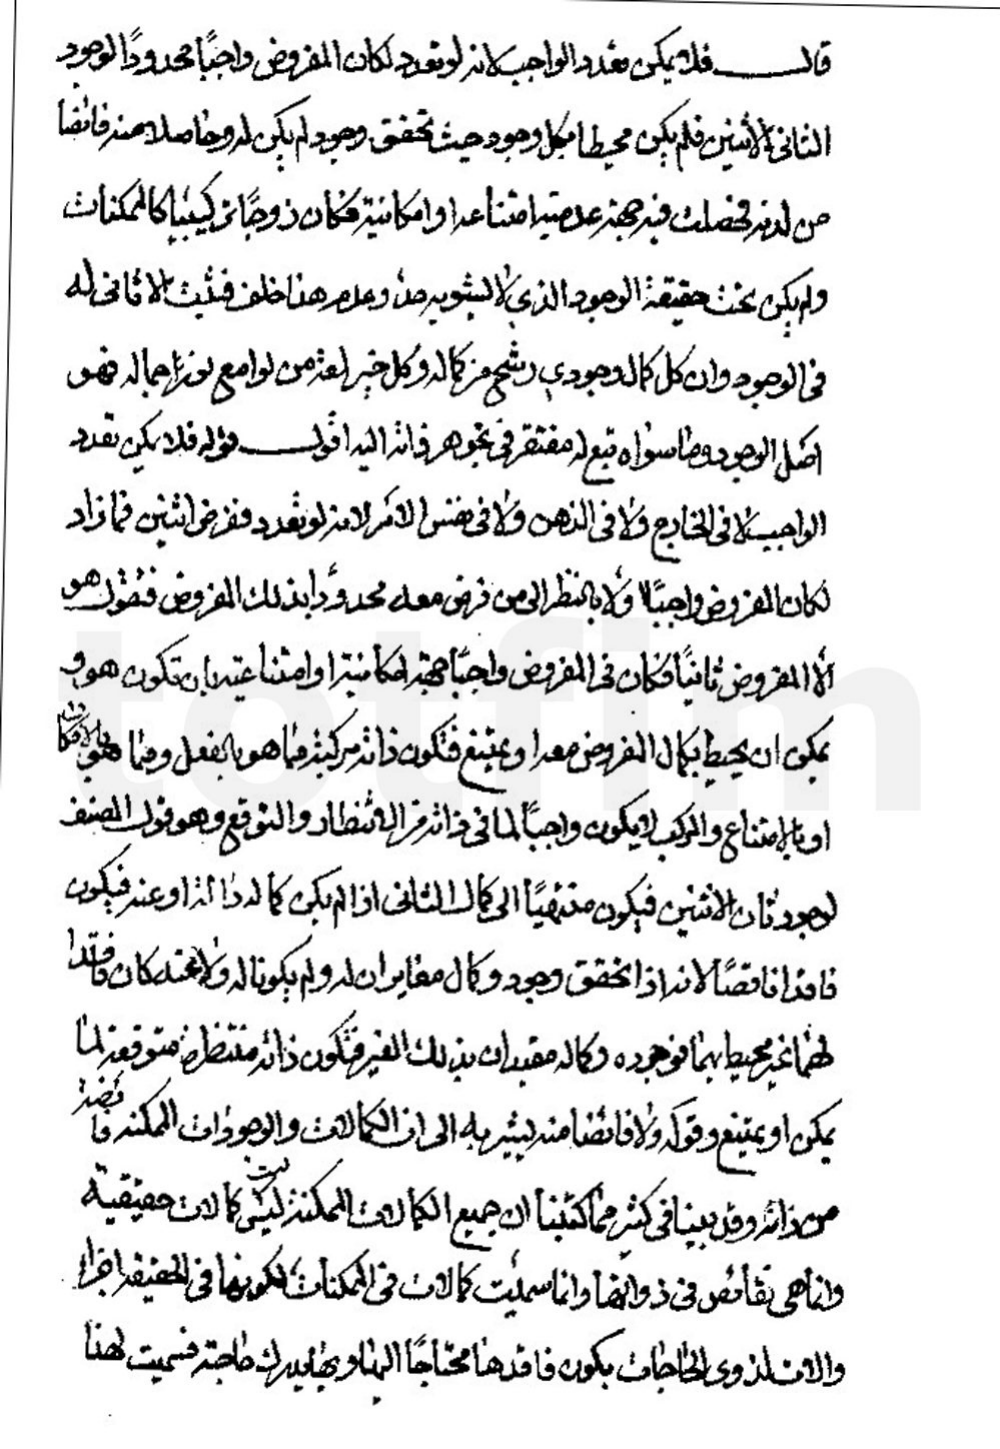 قال فلا يمكن تعدد الواجب لانه لو تعدد لكان المفروض واجبًا محدود الوجود
الثانى الاثنين فلم يكن محيطا بكل وجود حيث تحقق وجود لم يكن له وحاصلا منه فائضا
من لدنه فحصلت فيه جهة عدمية امتناعية او امكانية فكان زوجًا تركيبيا كالممكنات
ولم يكن بحت حقيقة الوجود الذى لا يشوبه حد وعدم هذا خلف فثبت الا ثانى له
فى الوجود وان كل كمال وجودى رشح من كماله وكل خير لمعة من لوامع نور جماله فهو
اصل الوجود وما سواه تبع له مفتقر فى تجوهر ذاته اليه اقول قوله فلا يمكن تعدد
الواجب لا فى الخارج ولا فى الذهن ولا فى نفس الامر لانه لو تعدد ففرض اثنين فما زاد
لكان المفروض واجبًا ولا بالنظر الى من فرض معه محدودًا بذلك المفروض فنقول هو
المفروض ثانيًا فكان فى المفروض واجبًا جهة امكانية او امتناعية بان تكون هو و
يمكن ان يحيط بكمال المفروض معه او يمتنع فتكون ذاته مركبة مما هو بالفعل ومما هو بالامكان
او بالامتناع والمركب لا يكون واجبًا لما فى ذاته من الانتظار والتوقع وهو قول المصنف
لوجود ثان الاثنين فيكون منتهيًا الى كمال الثانى اذا لم يكن كماله ذاته او عنه فيكون
فاقدا ناقصًا لانه اذا تحقق وجود وكمال مغايران له ولم يكونا له ولا عنه كان فاقدا
لهما غير محيط بهما فوجوده وكماله مقيدان بذلك الغير فتكون ذاته منتظرة متوقعة لما
يمكن او يمتنع وقوله ولا فائضا منه يشير به الى ان الكمالات والوجودات الممكنه فائضة
من ذاته وقد بينا فى كثير مما كتبنا ان جميع الكمالات الممكنة ليست كمالات حقيقية
وانما هى نقائص فى ذواتها وانما سميت كمالات فى الممكنات لكونها فى الحقيقة اجزاء
والات لذوى الحاجات يكون فاقدها محتاجًا اليها وبها يدرك حاجته فسميت لهذا